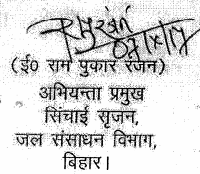 (ई० राम पुकार रंजन)
अभियन्ता प्रमुख
सिंचाई सृजन,
जल संसाधन विभाग,
बिहार।